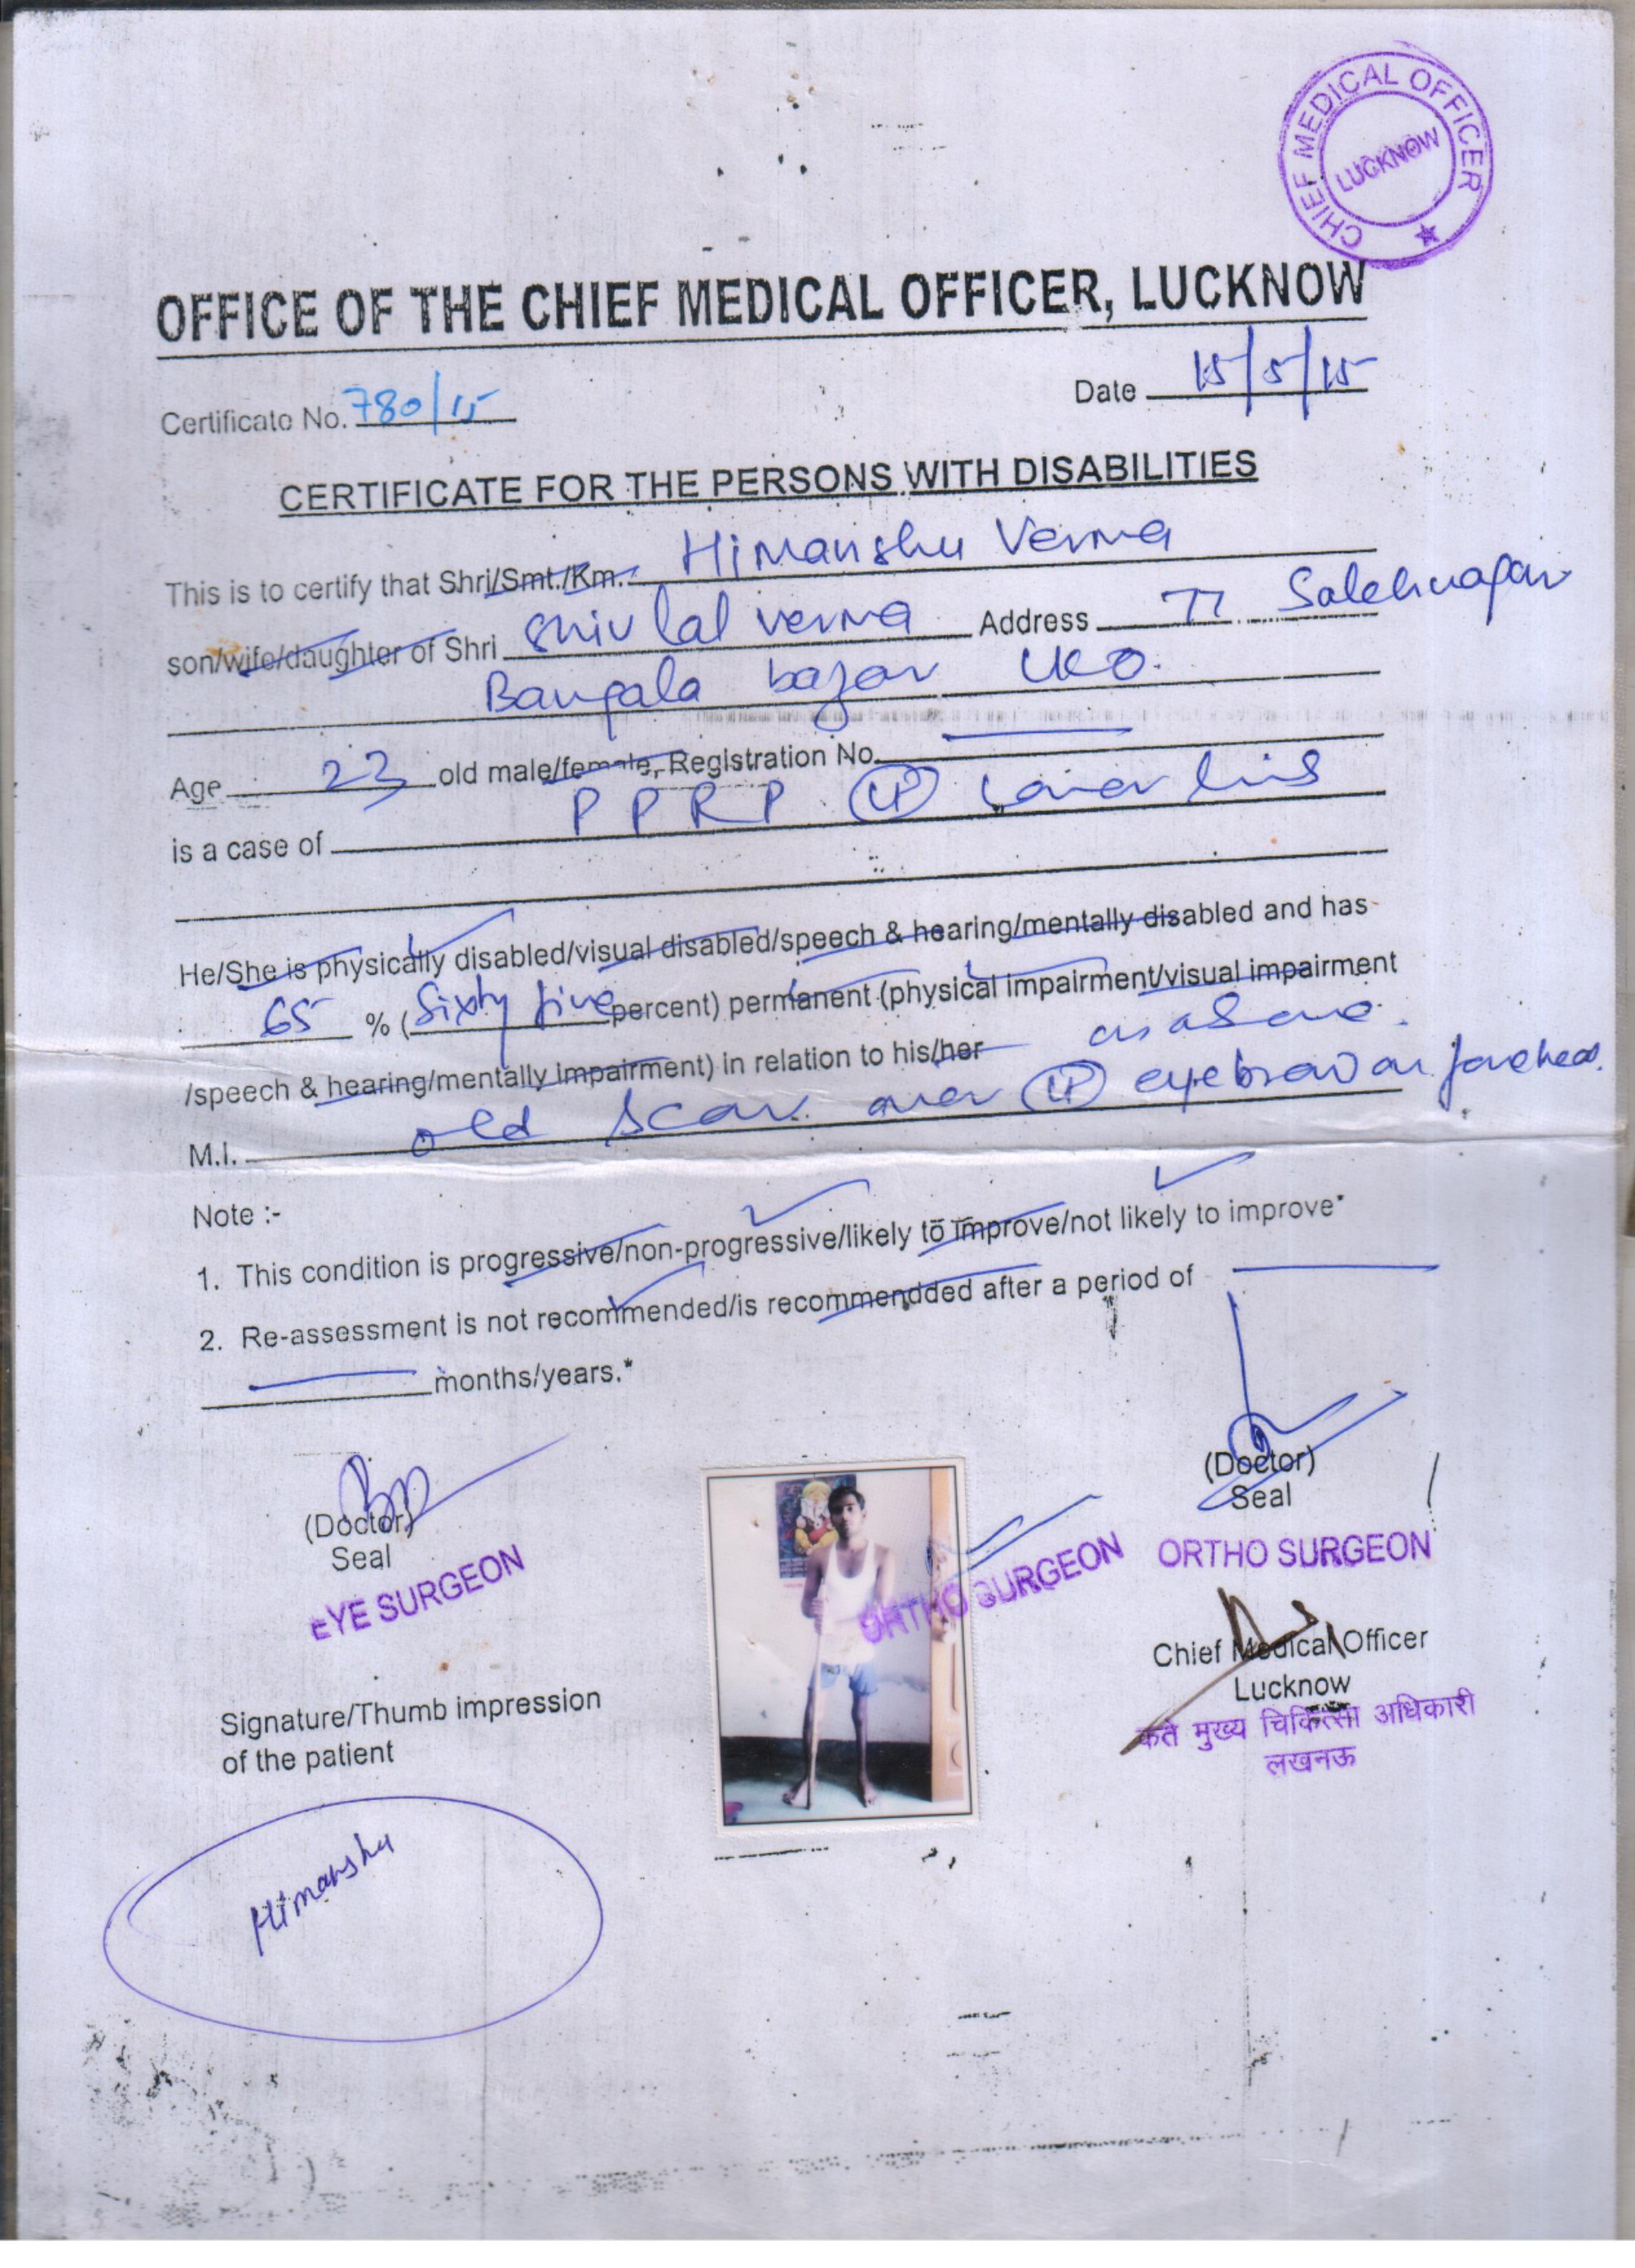 CHIEF MEDICAL OFFICER
LUCKNOW
OFFICE OF THE CHIEF MEDICAL OFFICER, LUCKNOW
Certificate No. 780/15
Date 15/5/15
CERTIFICATE FOR THE PERSONS WITH DISABILITIES
This is to certify that Shri/Smt./Km. Himanshu Verma
son/wife/daughter of Shri Shiv lal verma Address 77 Salehnagar
Bangala bazar LKO.
Age 23 old male/female, Registration No.
is a case of PPRP Lower limb
He/She is physically disabled/visual disabled/speech & hearing/mentally disabled and has
65 % (Sixty five percent) permanent (physical impairment/visual impairment
/speech & hearing/mentally impairment) in relation to his/her as above.
M.I. old scar over eyebrow on forehead.
Note :-
1. This condition is progressive/non-progressive/likely to improve/not likely to improve*
2. Re-assessment is not recommended/is recommendded after a period of
months/years.*
(Doctor)
Seal
EYE SURGEON
(Doctor)
Seal
ORTHO SURGEON
ORTHO SURGEON
Chief Medical Officer
Lucknow
कृते मुख्य चिकित्सा अधिकारी
लखनऊ
Signature/Thumb impression
of the patient
Himanshu